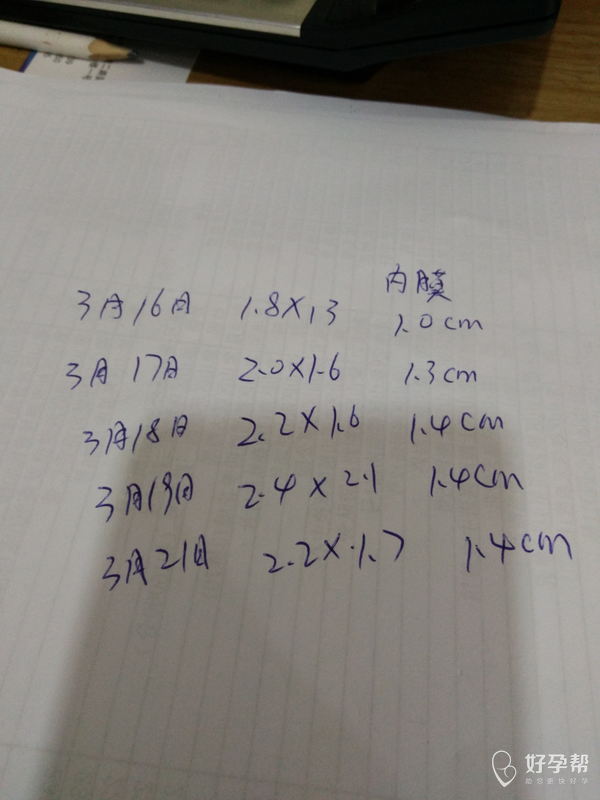 内膜
3月16日 1.8×1.3 1.0cm
3月17日 2.0×1.6 1.3cm
3月18日 2.2×1.6 1.4cm
3月19日 2.4×2.1 1.4cm
3月21日 2.2×1.7 1.4cm
好孕帮
助您更快好孕